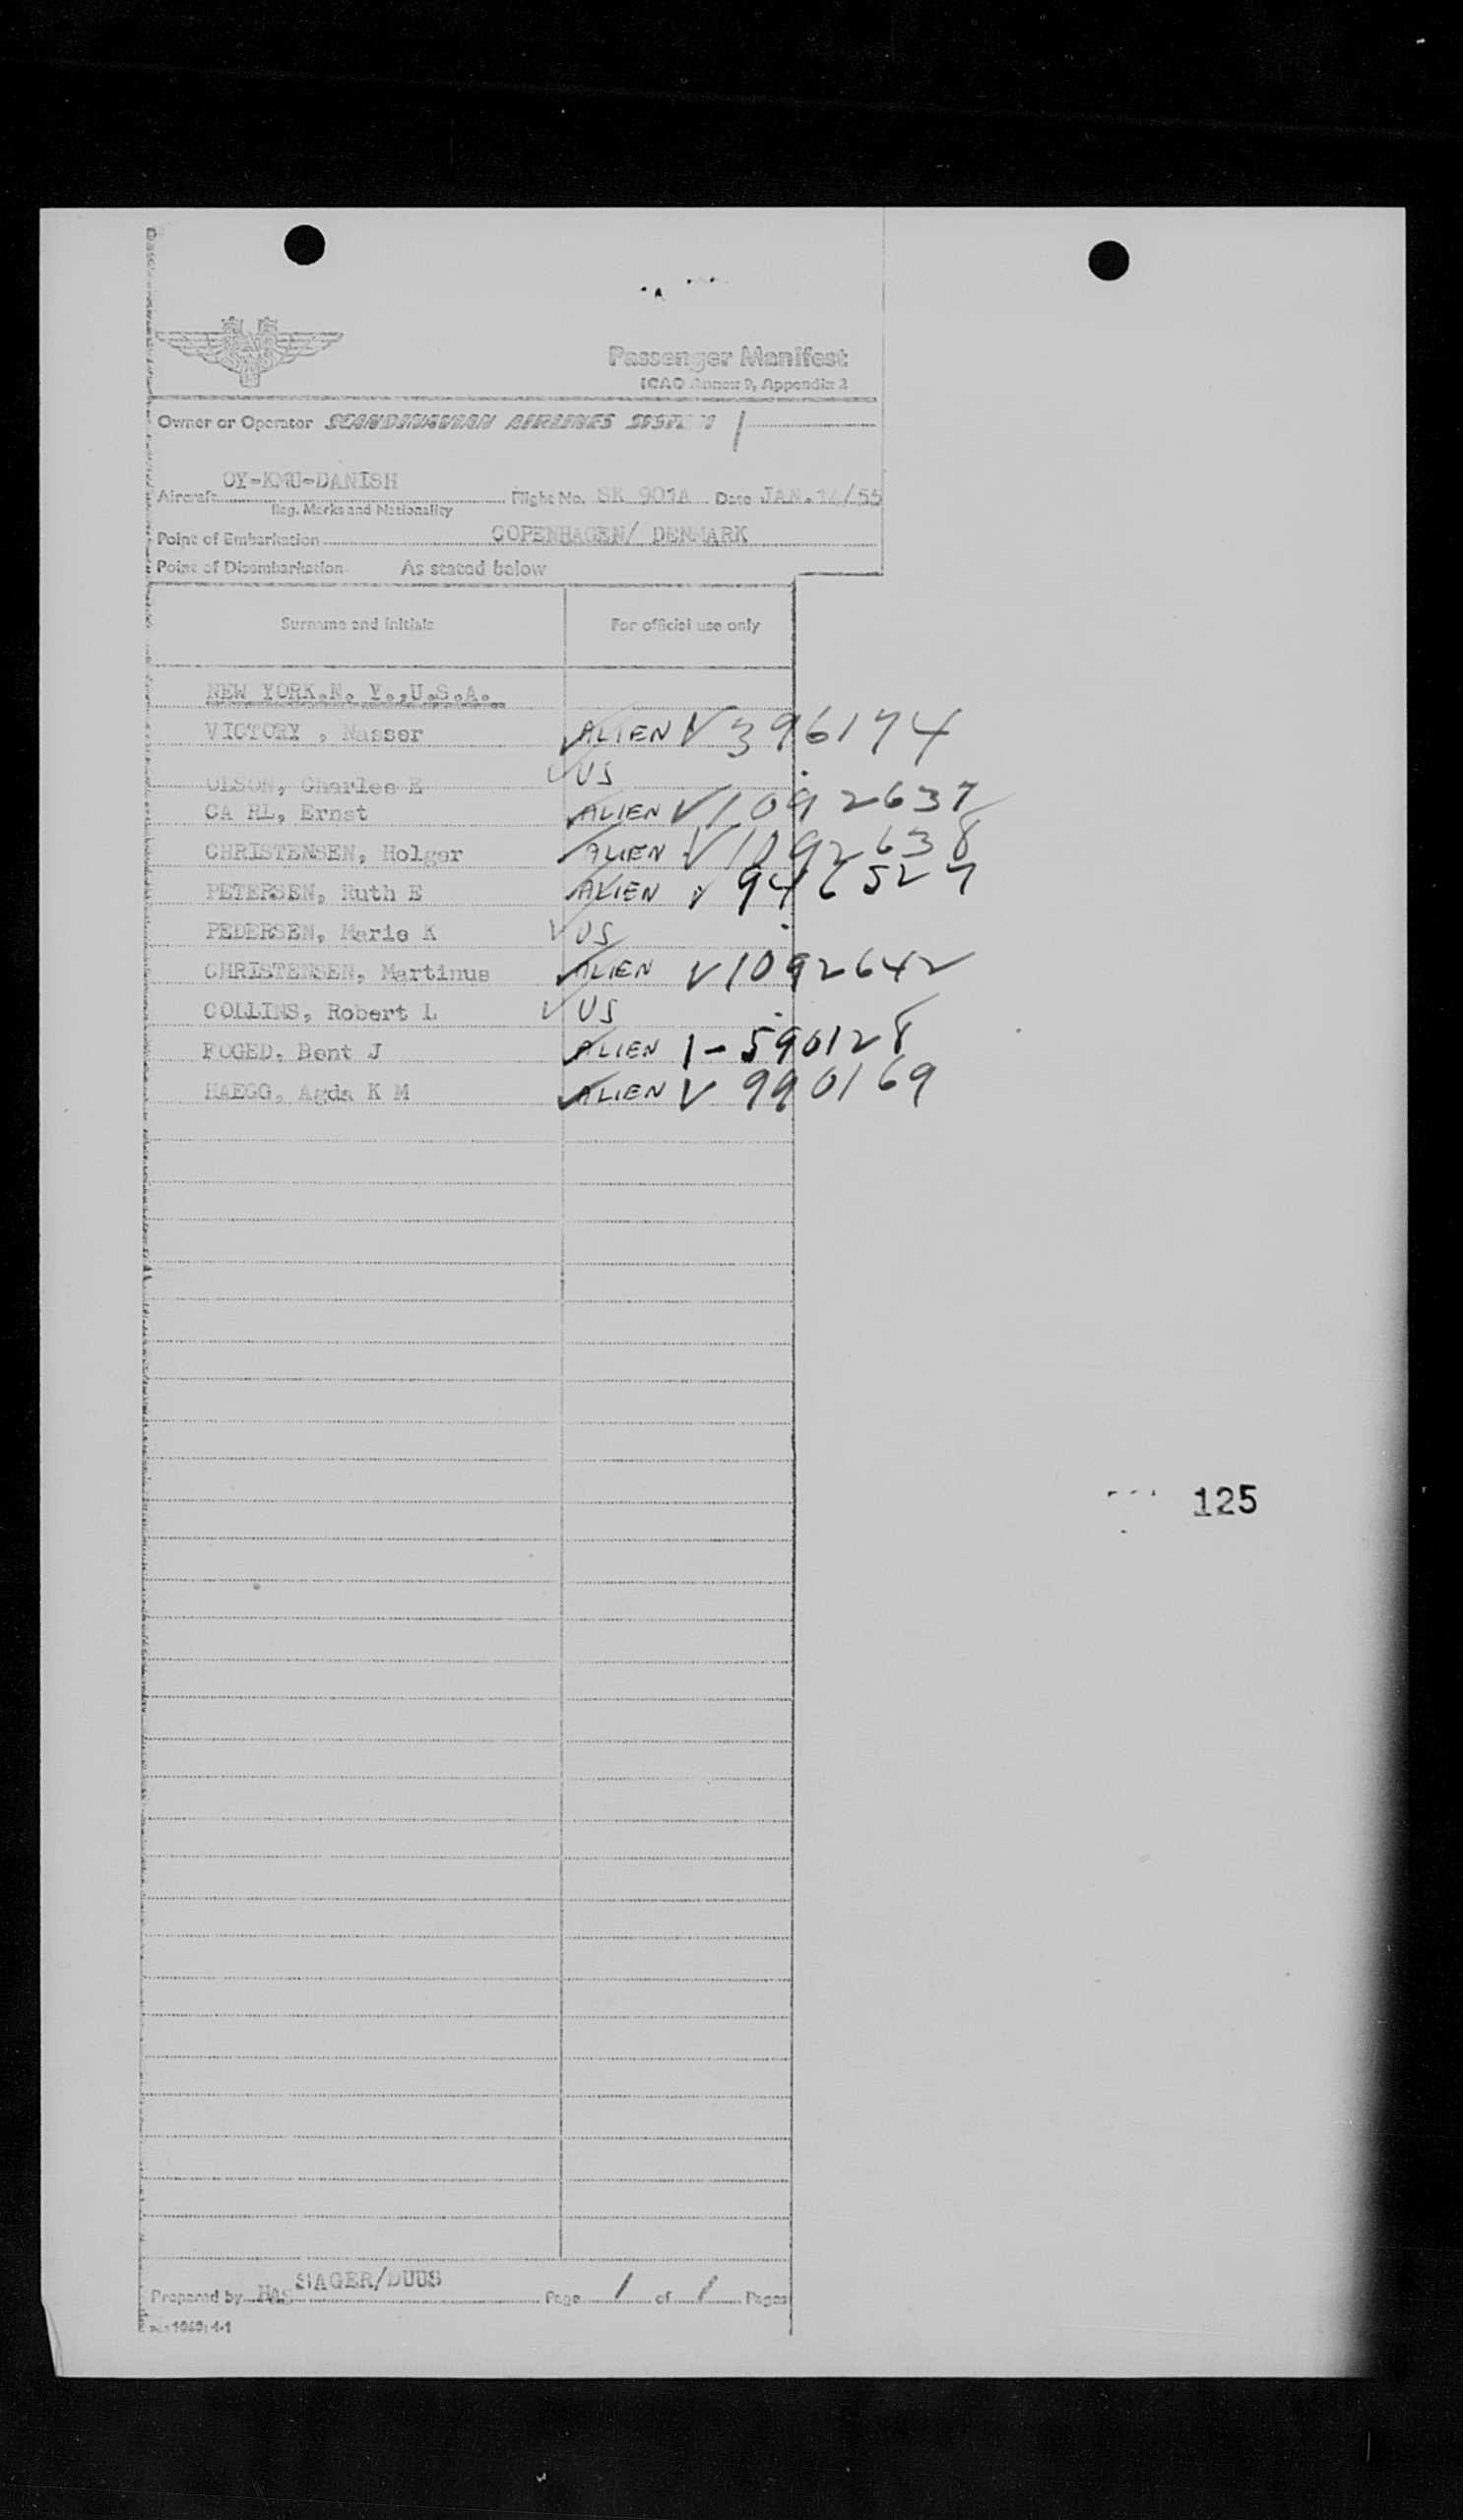 Passenger Manifest
ICAO Annex 9, Appendix 3
Owner or Operator SCANDINAVIAN AIRLINES SYSTEM
OY-KMU-DANISH
Aircraft Flight No. SK 901A Date JAN. 14/55
Reg. Marks and Nationality
Point of Embarkation COPENHAGEN/ DENMARK
Point of Disembarkation As stated below
Surname and initials For official use only
NEW YORK.N. Y.,U.S.A.
VICTORY , Nasser ALIEN V 396174
OLSON, Charles E US
CA RL, Ernst ALIEN V1092637
CHRISTENSEN, Holger ALIEN V1092638
PETERSEN, Ruth E ALIEN V 946527
PEDERSEN, Marie K US
CHRISTENSEN, Martinus ALIEN V1092642
COLLINS, Robert L US
FOGED. Bent J ALIEN 1-590128
HAEGG, Agda K M ALIEN V 990169
125
SAGER/DUUS
Prepared by Page 1 of 1 Pages